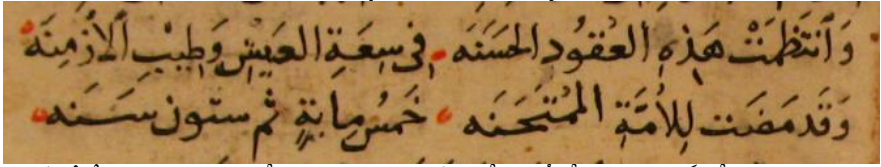 وَانتَظَمَتْ هَذِهِ العُقُودِ الحَسَنَه فِى سِعَةِ العَيْشِ وَطِيْبِ الاَزْمِنَهْ
وَقَدمَضَت لِلاُمَّةِ المُمْتَحَنَه خَمْسُ مِايةٍ ثم ستون سَنَه